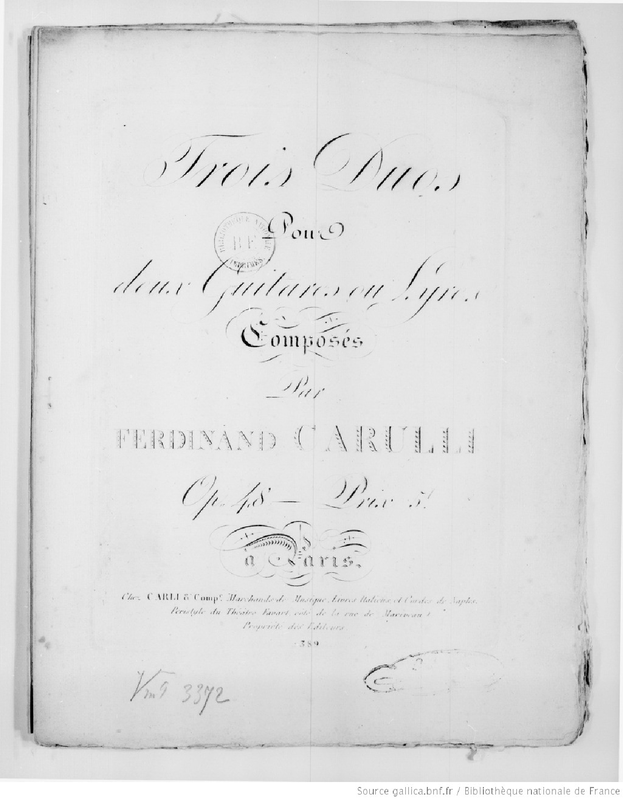 Trois Duos
Pour
deux Guitares ou Lyres
Composés
Par
FERDINAND CARULLI
Op. 48 — Prix 5f
à Paris,
Chez CARLI & Comp.e Marchands de Musique, Livres Italiens et Cordes de Naples
Peristyle du Théâtre Favart coté de la rue de Marivaux
Propriété des Editeurs
389
BIBLIOTHEQUE
B F
Vm9 3372
Source gallica.bnf.fr / Bibliothèque nationale de France